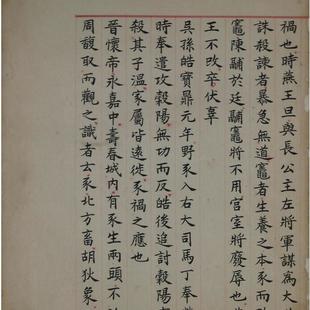 禍也時燕王旦與長公主左將軍謀為大
誅殺諫者暴急無道竈者生養之本豕而
竈陳鬴於廷鬴竈將不用宮室將廢辱也
王不改卒伏辜
吳孫皓寶鼎元年野豕入右大司馬丁奉
時奉遣攻穀陽無功而反皓後追討穀陽
殺其子溫家屬皆遠徙豕禍之應也
晉懷帝永嘉中壽春城內有豕生兩頭不
周馥取而觀之識者云豕北方畜胡狄象